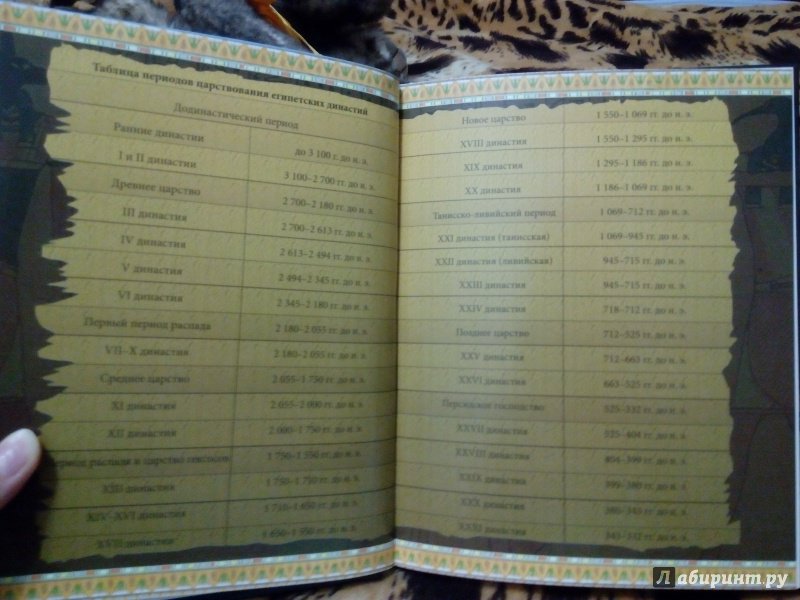 Таблица периодов царствования египетских династий
Додинастический период
Ранние династии до 3 100 г. до н. э.
I и II династии 3 100–2 700 гг. до н. э.
Древнее царство 2 700–2 180 гг. до н. э.
III династия 2 700–2 613 гг. до н. э.
IV династия 2 613–2 494 гг. до н. э.
V династия 2 494–2 345 гг. до н. э.
VI династия 2 345–2 180 гг. до н. э.
Первый период распада 2 180–2 055 гг. до н. э.
VII–X династия 2 180–2 055 гг. до н. э.
Среднее царство 2 055–1 750 гг. до н. э.
XI династия 2 055–2 000 гг. до н. э.
XII династия 2 000–1 750 гг. до н. э.
период распада и царство гиксосов 1 750–1 550 гг. до н. э.
XIII династия 1 750–1 710 гг. до н. э.
XIV–XVI династия 1 710–1 650 гг. до н. э.
XVII династия 1 650–1 550 гг. до н. э.
Новое царство 1 550–1 069 гг. до н. э.
XVIII династия 1 550–1 295 гг. до н. э.
XIX династия 1 295–1 186 гг. до н. э.
XX династия 1 186–1 069 гг. до н. э.
Танисско-ливийский период 1 069–712 гг. до н. э.
XXI династия (танисская) 1 069–945 гг. до н. э.
XXII династия (ливийская) 945–715 гг. до н. э.
XXIII династия 945–715 гг. до н. э.
XXIV династия 718–712 гг. до н. э.
Позднее царство 712–525 гг. до н. э.
XXV династия 712–663 гг. до н. э.
XXVI династия 663–525 гг. до н. э.
Персидское господство 525–332 гг. до н. э.
XXVII династия 525–404 гг. до н. э.
XXVIII династия 404–399 гг. до н. э.
XXIX династия 399–380 гг. до н. э.
XXX династия 380–343 гг. до н. э.
XXXI династия 343–332 гг. до н. э.
Лабиринт.ру